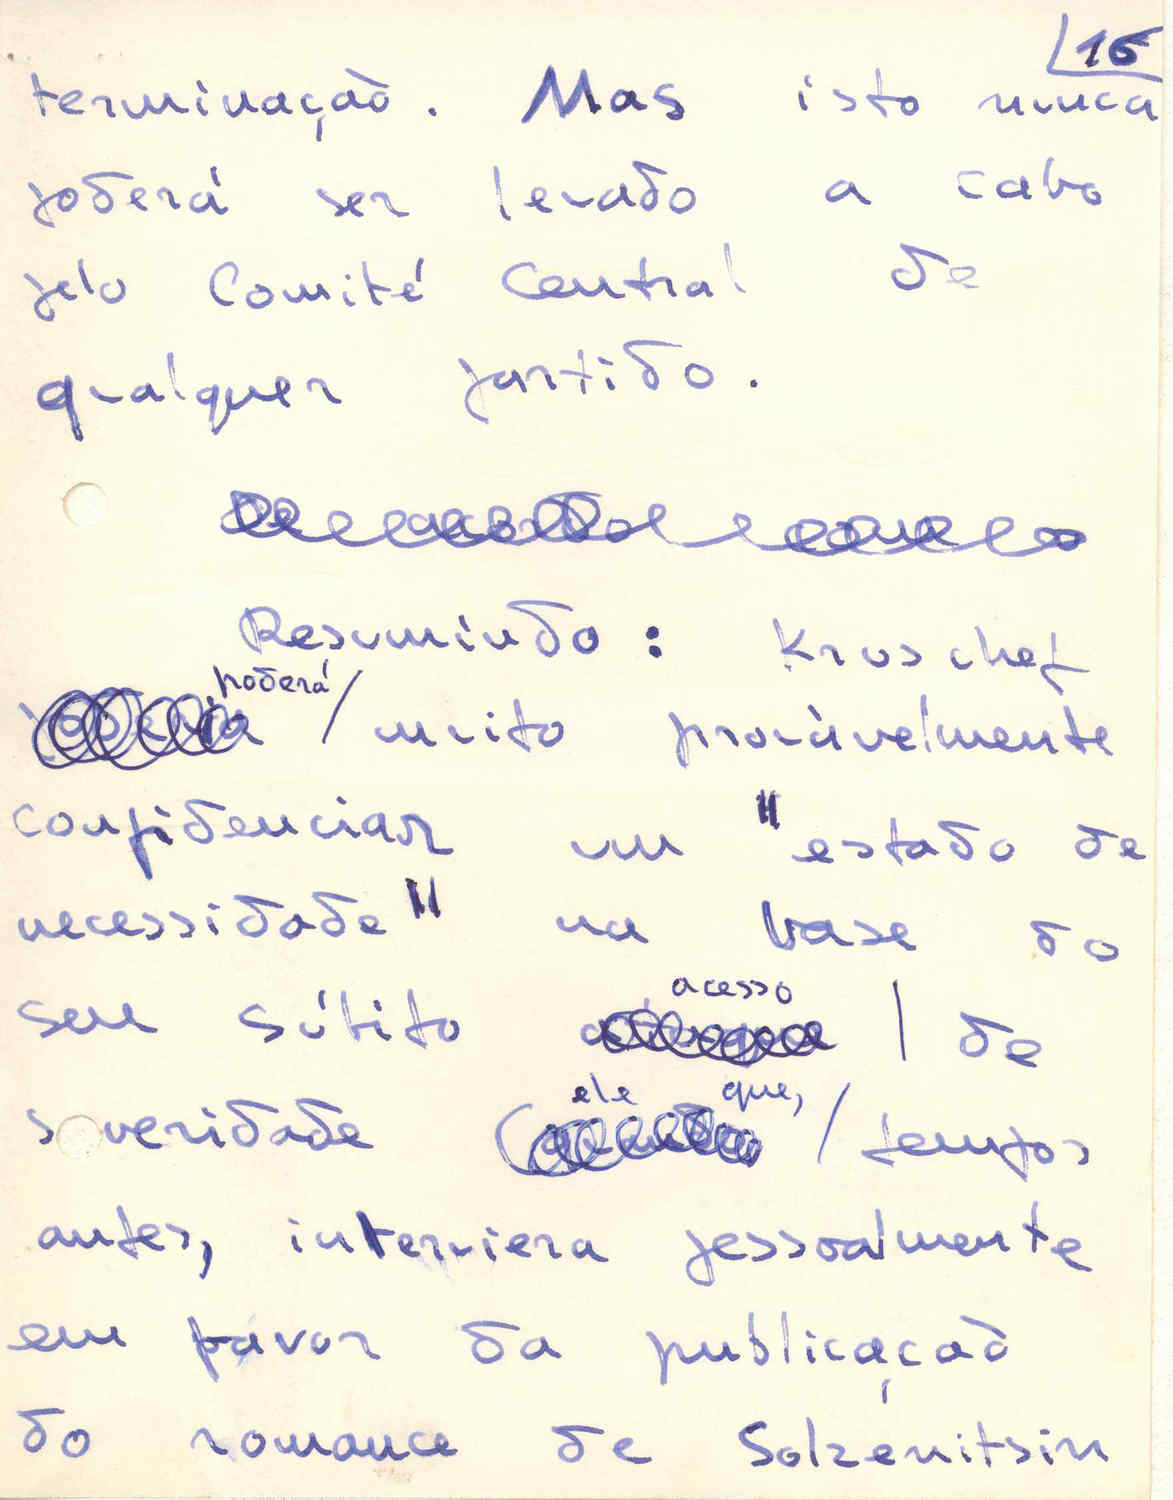 16
terminação. Mas isto nunca
poderá ser levado a cabo
pelo Comité Central de
qualquer partido.
Resumindo: Kruschef
poderá
muito provàvelmente
confidenciar um "estado de
necessidade" na base do
acesso
seu súbito de
ele que,
severidade ( tempos
antes, interviera pessoalmente
em favor da publicação
do romance de Solzenitsin